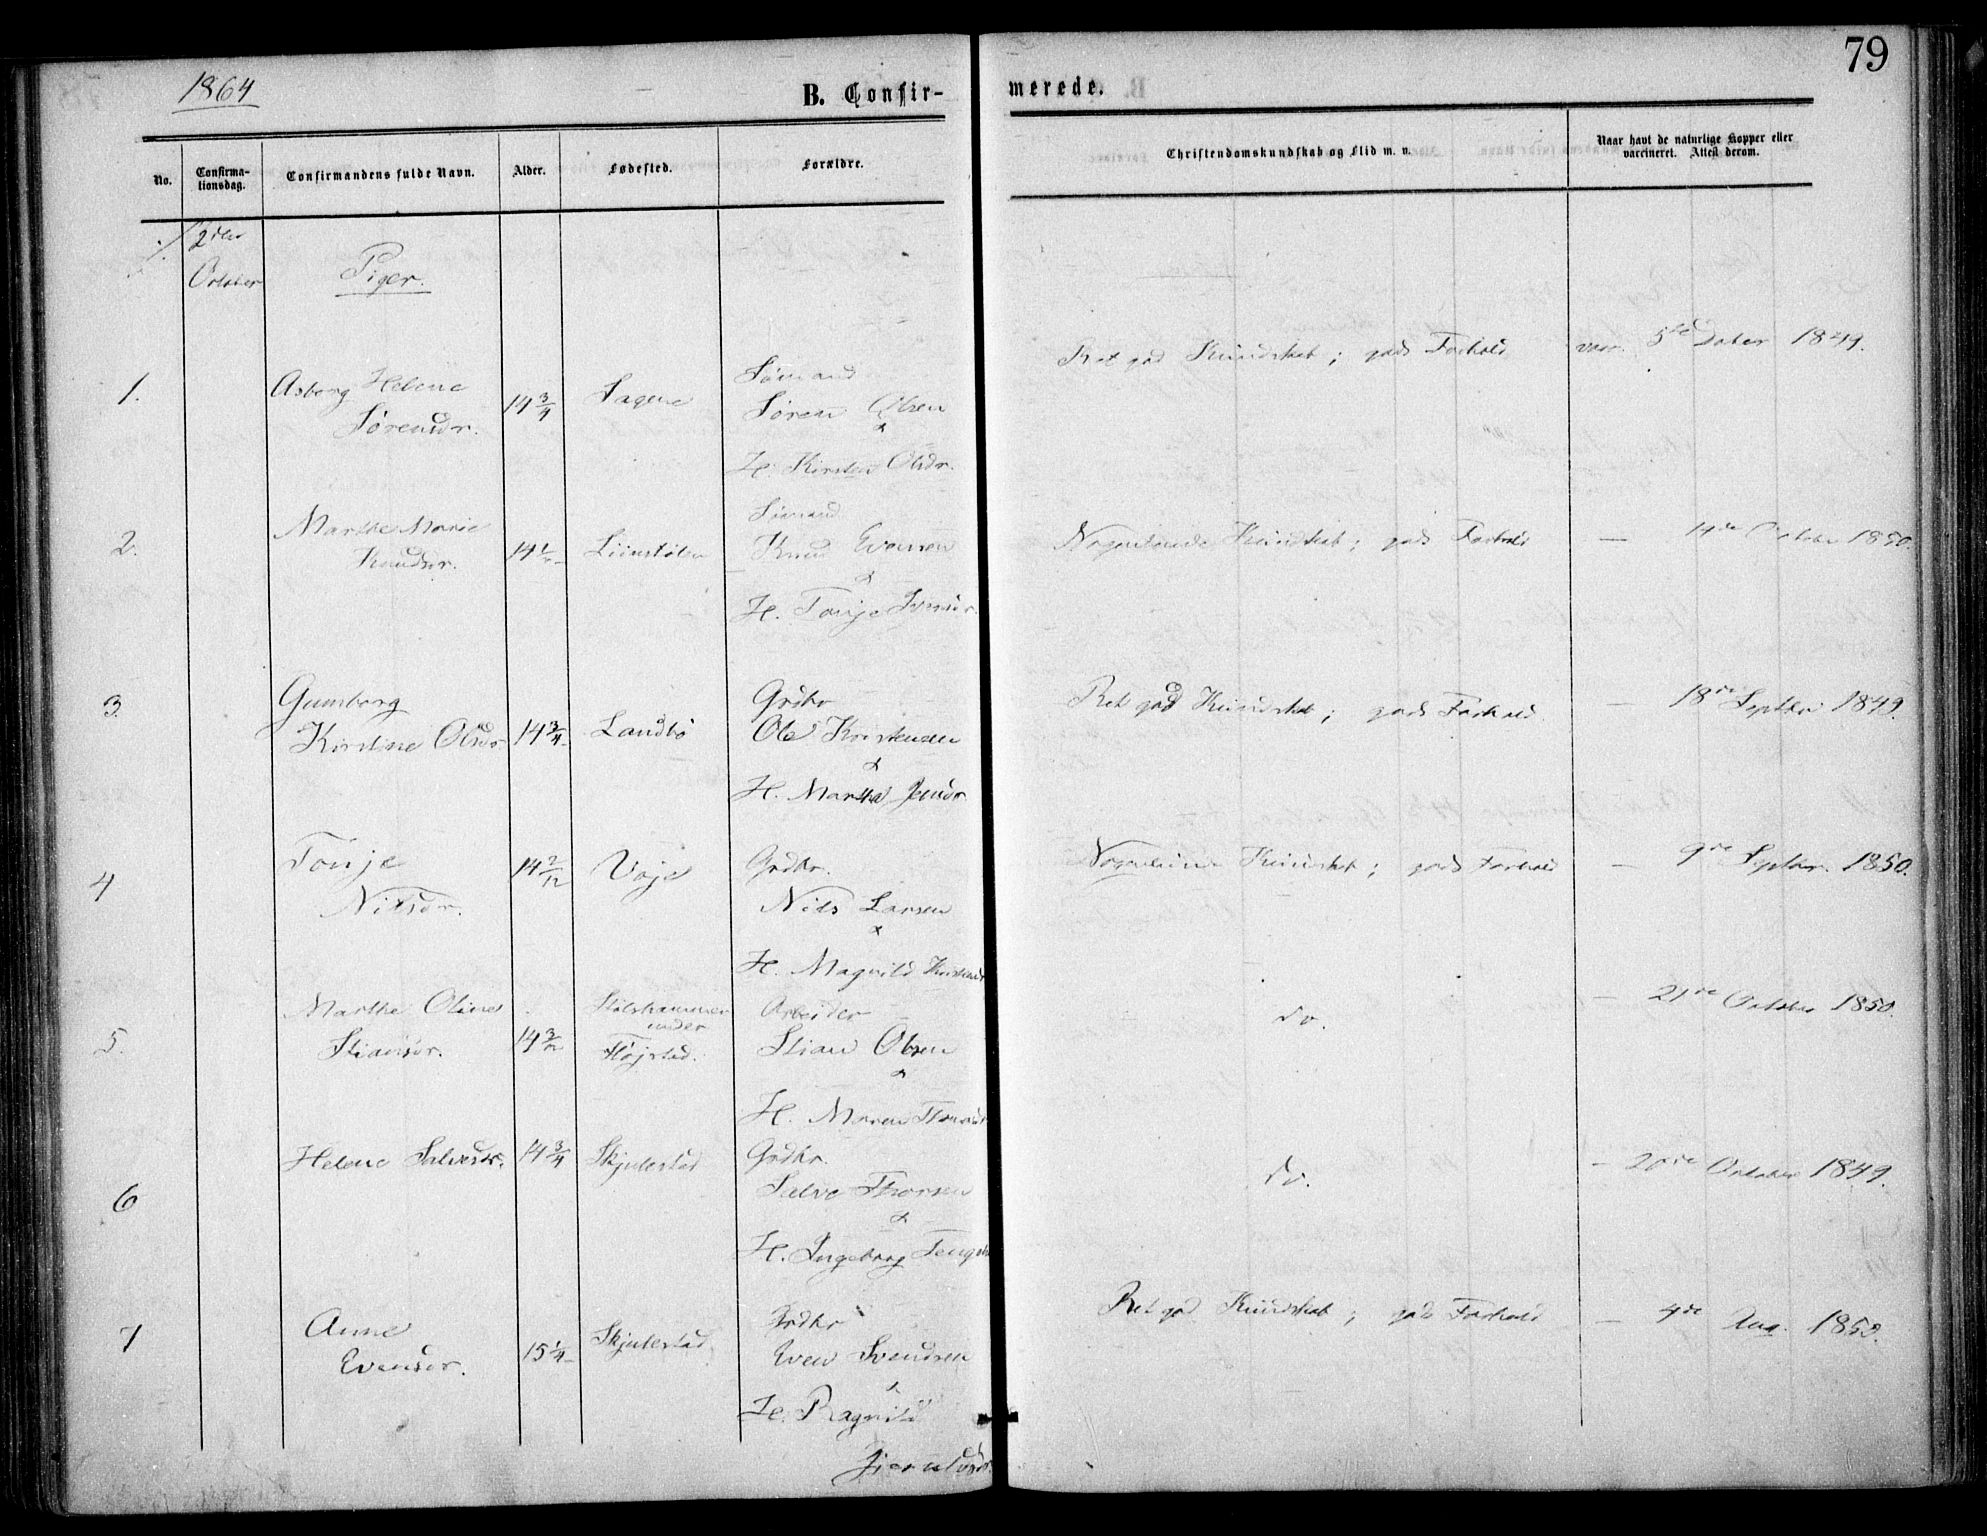 79
1864
B. Confirmerede.
No.
Confirmationsdag.
Confirmandens fulde Navn.
Alder.
Fødested.
Forældre.
Christendomskundskab og Flid m. v.
Naar havt de naturlige Kopper eller
vaccineret. Attest derom.
2den
October
Piger.
1.
Asborg Helene
Sørensdr.
14 3/4
Sagene
Sømand
Søren Olsen
&
H. Kirsten Olsdr.
Ret god Kundskab; gods Forhold
vacc. 5te Octber 1849.
2.
Marthe Marie
Knudsdr.
14
Sømand
Knud Evensen
&
H. Tonje Iversdr.
Nogenlunde Kundskab; gods Forhold
— 14de October 1850.
3.
Gumborg
Kirstine Olsdr.
14 3/4
Landbø
Grdbr
Ole Kristensen
&
H. Marthe Jensdr.
Ret god Kundskab; gods Forhold.
— 18de Septbr 1849.
4
Tonje
Nilsdr.
14 2/12
Voje
Grdbr.
Nils Larsen
&
H. Magnild
Nogenlunde Kundskab; gods Forhold
— 9de Septbr. 1850.
5.
Marthe Oline
Stiansdr.
14 3/12
Stølshammer
under
Fløjstad.
Arbeider
Stian Olsen
&
H. Maren
do.
— 21de October 1850.
6
Helene Salvesdr.
14 3/4
Skjulestad
Grdbr.
Salve Thorsen
&
H. Ingeborg
do.
— 20de October 1849.
7
Anne
Evensdr.
15 1/4
Skjulestad
Grdbr
Even Svendsen
&
H. Ragnild
Ret god Kundskab; gods Forhold
— 4de Aug. 1850.